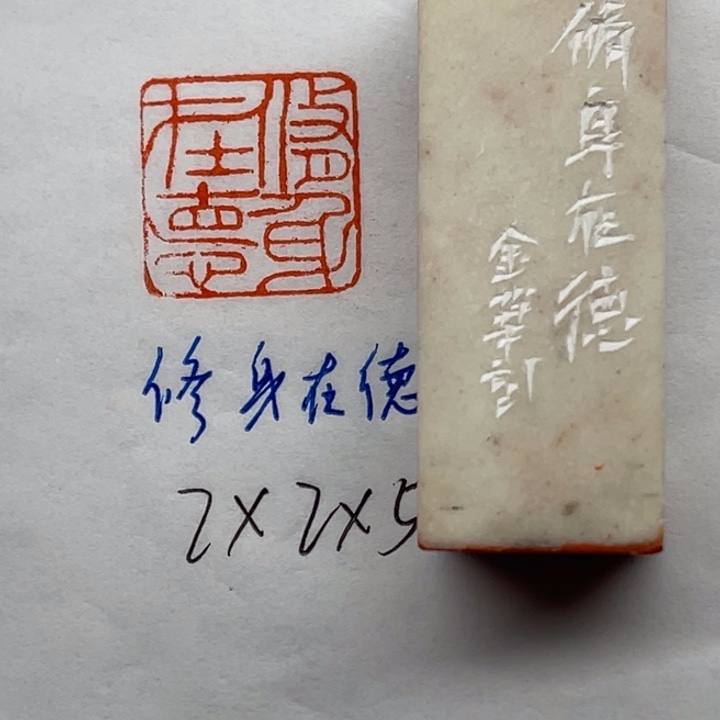 修身在德
修身在德
2×2×5
脩身在德
金華記